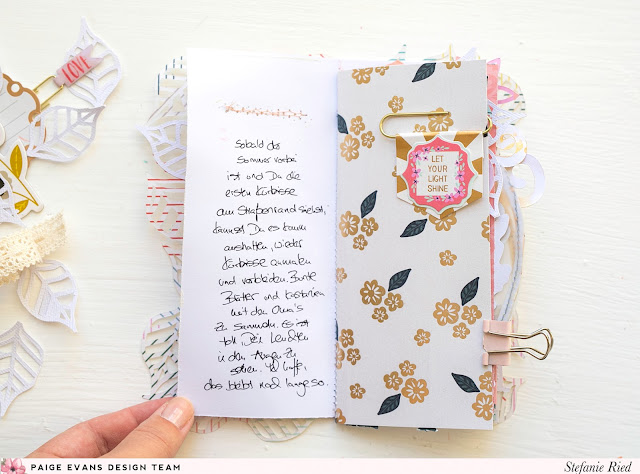 LOVE
sobald der
Sommer vorbei
ist und Du die
ersten Kürbisse
am Straßenrand siehst,
kannst Du es kaum
aushalten, wieder
Kürbisse anmalen
und verkleiden. Bunte
Blätter und Kastanien
mit den Oma's
zu sammeln. Es ist
toll Dein Leuchten
in den Augen zu
sehen. Ich hoffe,
das bleibt noch lange so.
LET
YOUR
LIGHT
SHINE
PAIGE EVANS DESIGN TEAM
Stefanie Ried